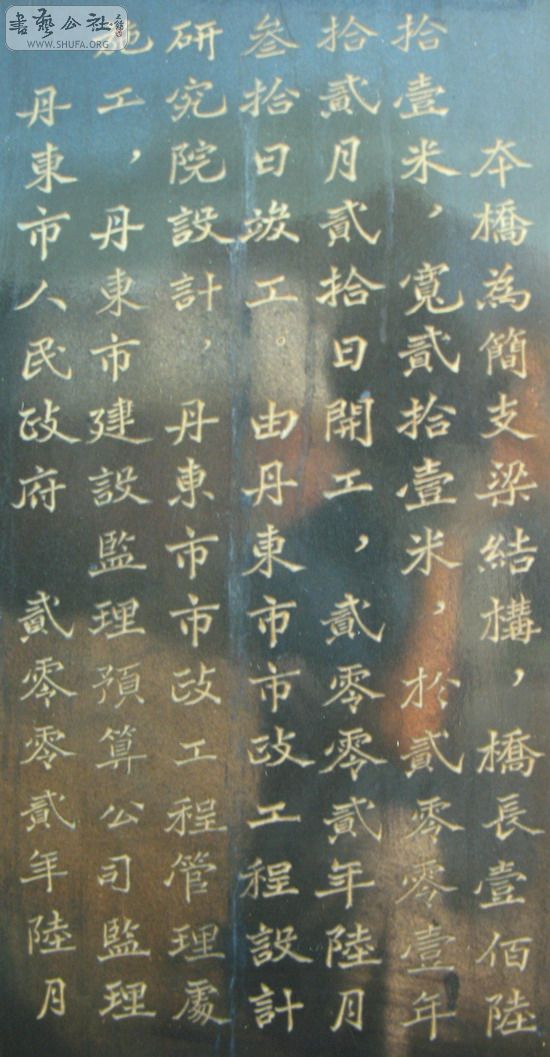 書藝公社
WWW.SHUFA.ORG
本橋為簡支梁結構，橋長壹佰陸
拾壹米，寬貳拾壹米，於貳零零壹年
拾貳月貳拾日開工，貳零零貳年陸月
叁拾日竣工。由丹東市市政工程設計
研究院設計，丹東市市政工程管理處
施工，丹東市建設監理預算公司監理
丹東市人民政府 貳零零貳年陸月